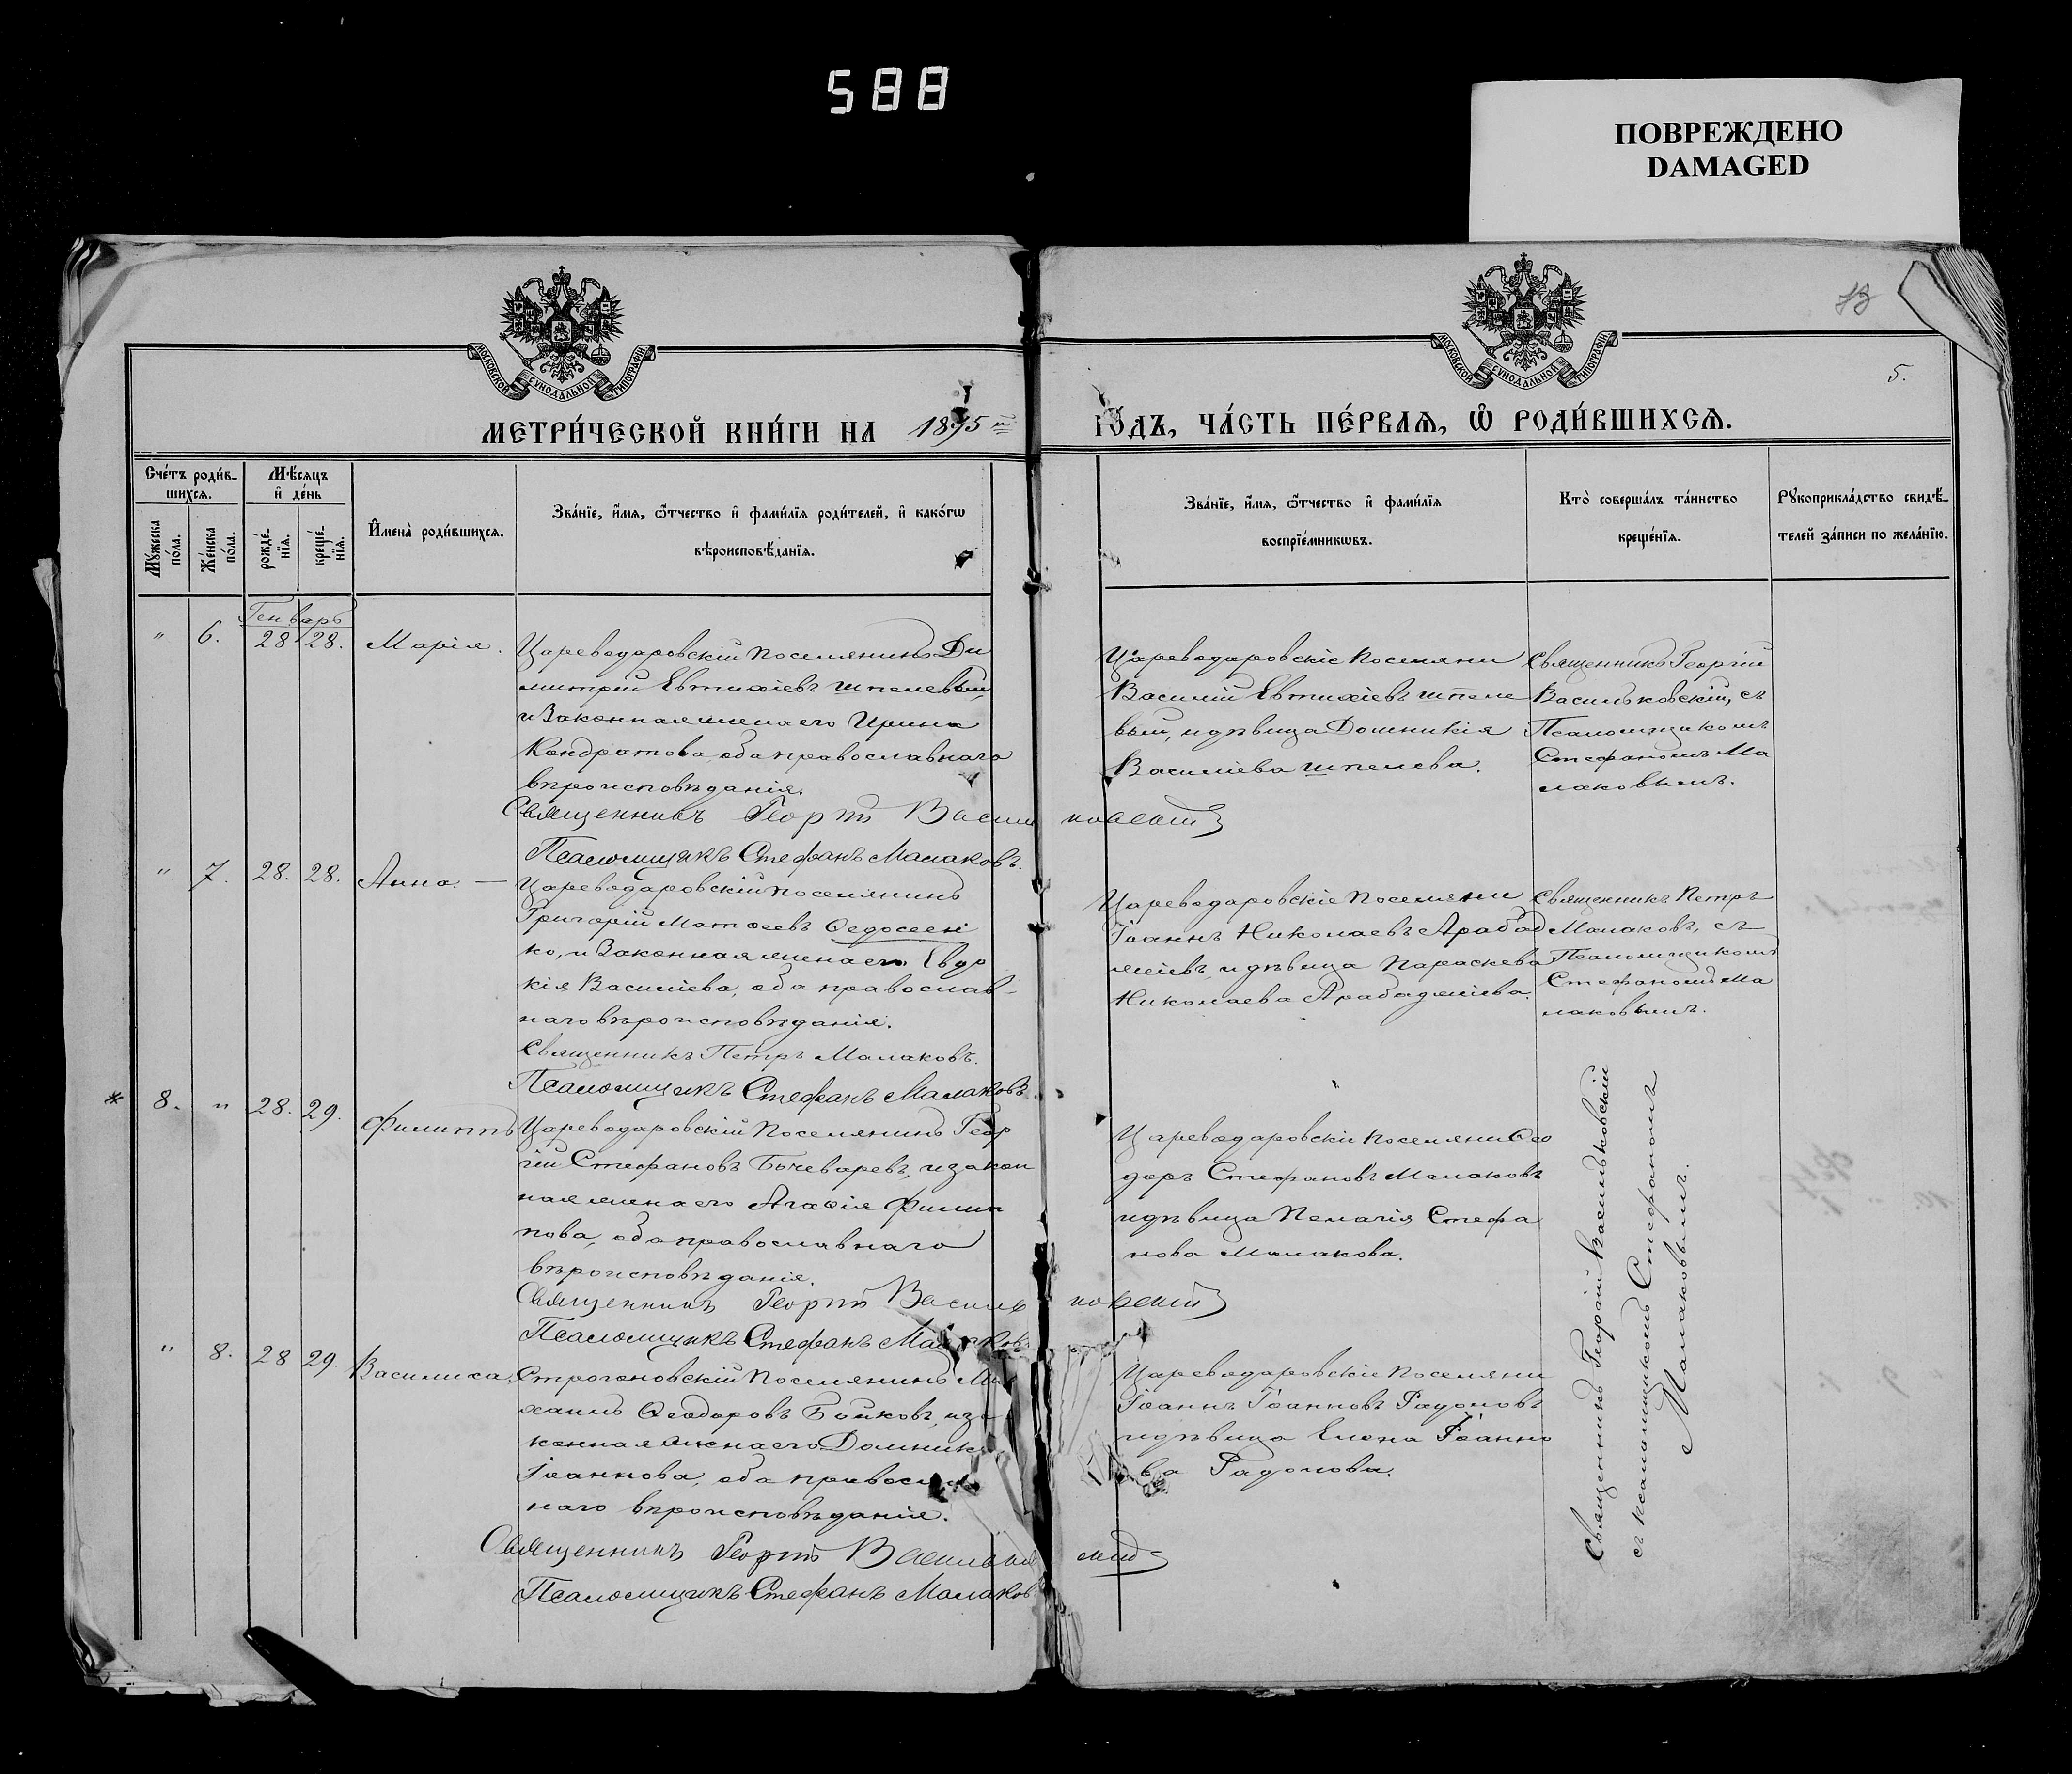 588
ПОВРЕЖДЕНО
DAMAGED
МОСКОВСКОЙ СУНОДАЛЬНОЙ ТИПОГРАФІИ
МОСКОВСКОЙ СУНОДАЛЬНОЙ ТИПОГРАФІИ
5.
МЕТРИ́ЧЕСКОЙ КНИ́ГИ НА 1895 й
ГО́ДЪ, ЧА́СТЬ ПЕ́РВАѦ, Ѡ҆ РОДИ́ВШИХСѦ.
Сче́тъ роди́в-
шихсѧ.
Мꙋжеска по́ла.
Же́нска по́ла.
Мѣ́сѧцъ
и҆ де́нь
рожде́-
нїѧ.
креще́-
нїѧ.
И҆мена̀ роди́вшихсѧ.
Зва́нїе, и҆́мѧ, ѻ҆́тчество и҆ фамѝлїѧ роди́телей, и҆ како́гѡ
вѣроисповѣ́данїѧ.
Зва́нїе, и҆́мѧ, ѻ҆́тчество и҆ фами́лїѧ
воспрїе́мникѡвъ.
Кто̀ соверша́лъ та́инство
креще́нїѧ.
Рꙋкоприкла́дство свидѣ́-
телей за́писи по жела́нїю.
Генварь
" 6. 28 28. Марія.
Цареводаровскій поселянинъ Ди
митрій Евтихіевъ Шпелевый,
и законная жена его Ирина
Кондратова, оба православнаго
вѣроисповѣданія.
Священникъ Георгій Васильковскій
Псаломщикъ Стефанъ Малаковъ.
Цареводаровскіе поселяни
Василій Евтихіевъ Шпеле
вый, и дѣвица Домникія
Василіева Шпелева.
Священникъ Георгій
Васильковскій, съ
Псаломщикомъ
Стефаномъ Ма
лаковымъ.
" 7. 28. 28. Анна. —
Цареводаровскій поселянинъ
Григорій Матѳеевъ Ѳедосеен
ко, и законная жена его Евдо
кія Василіева, оба православ-
наго вѣроисповѣданія.
Священникъ Петръ Малаковъ.
Псаломщикъ Стефанъ Малаковъ
Цареводаровскіе поселяни
Іоаннъ Николаевъ Арабад
жіевъ, и дѣвица Параскева
Николаева Арабаджіева.
Священникъ Петръ
Малаковъ, съ
Псаломщикомъ
Стефаномъ Ма
лаковымъ.
* 8. " 28. 29. Филиппъ
Цареводаровскій поселянинъ Геор
гій Стефановъ Бычеваревъ, и закон
ная жена его Агаѳія Филип
пова, оба православнаго
вѣроисповѣданія.
Священникъ Георгій Васильковскій
Псаломщикъ Стефанъ Малаковъ
Цареводаровскіе поселяни Ѳео
доръ Стефановъ Малаковъ
и дѣвица Пелагія Стефа
нова Малакова.
Священникъ Георгій Васильковскій
съ псаломщикомъ Стефаномъ
Малаковымъ.
" 8. 28 29. Василиса.
Строгановскій поселянинъ Ми
хаилъ Ѳеодоровъ Бойковъ, и за
конная жена его Домникія
Іоаннова, оба православ
наго вѣроисповѣданія.
Священникъ Георгій Васильковскій
Псаломщикъ Стефанъ Малаковъ
Цареводаровскіе поселяни
Іоаннъ Іоанновъ Радоловъ
и дѣвица Елена Іоанно
ва Радолова.